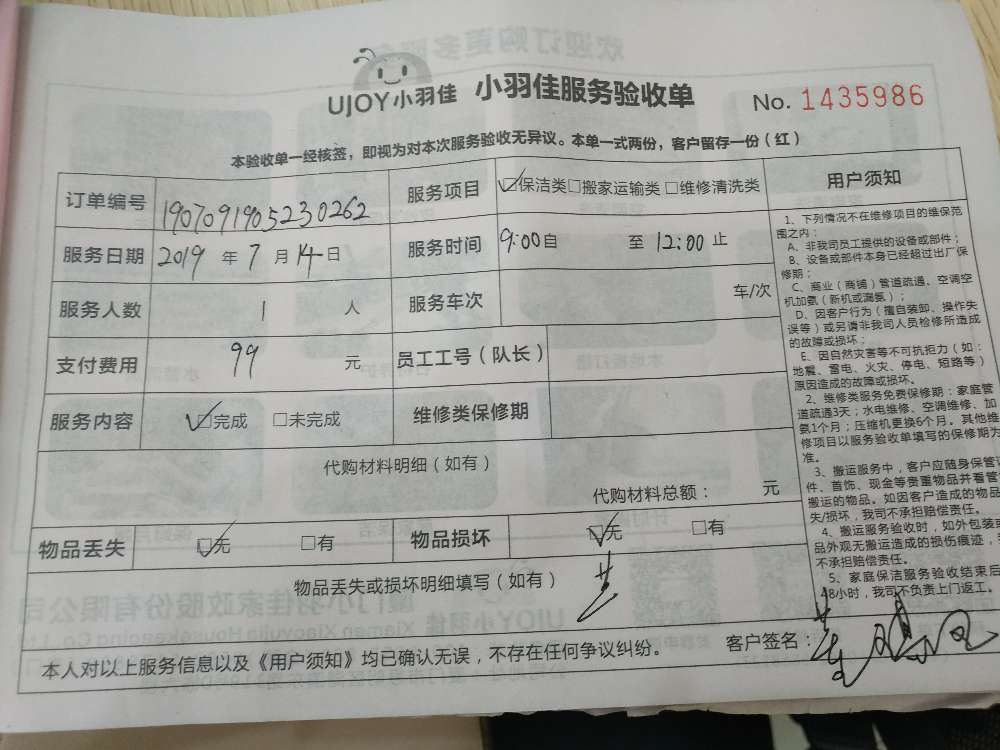 UJOY小羽佳 小羽佳服务验收单 No. 1435986
本验收单一经核签，即视为对本次服务验收无异议。本单一式两份，客户留存一份（红）
订单编号 1907091905230262 服务项目 ☑保洁类□搬家运输类□维修清洗类
服务日期 2019 年 7 月 14 日 服务时间 9:00自 至 12:00 止
服务人数 1 人 服务车次 车/次
支付费用 99 元 员工工号（队长）
服务内容 ☑完成 □未完成 维修类保修期
代购材料明细（如有）
代购材料总额： 元
物品丢失 ☑无 □有 物品损坏 ☑无 □有
物品丢失或损坏明细填写（如有）
本人对以上服务信息以及《用户须知》均已确认无误，不存在任何争议纠纷。 客户签名：
用户须知
1、下列情况不在维修项目的维保范
围之内：
A、非我司员工提供的设备或部件；
B、设备或部件本身已经超过出厂保
修期；
C、商业（商铺）管道疏通、空调空
机加氨（新机或漏氨）；
D、因客户行为（擅自装卸、操作失
误等）或另请非我司人员检修所造成
的故障或损坏；
E、因自然灾害等不可抗拒力（如：
地震、雷电、火灾、停电、短路等）
原因造成的故障或损坏。
2、维修类服务免费保修期：家庭管
道疏通3天；水电维修、空调维修、加
氨1个月；压缩机更换6个月。其他维
修项目以服务验收单填写的保修期为
准。
3、搬运服务中，客户应随身保管证
件、首饰、现金等贵重物品并看管
搬运的物品。如因客户造成的物品
失/损坏，我司不承担赔偿责任。
4、搬运服务验收时，如外包装或
品外观无搬运造成的损伤痕迹，
不承担赔偿责任。
5、家庭保洁服务验收结束后
48小时，我司不负责上门返工。